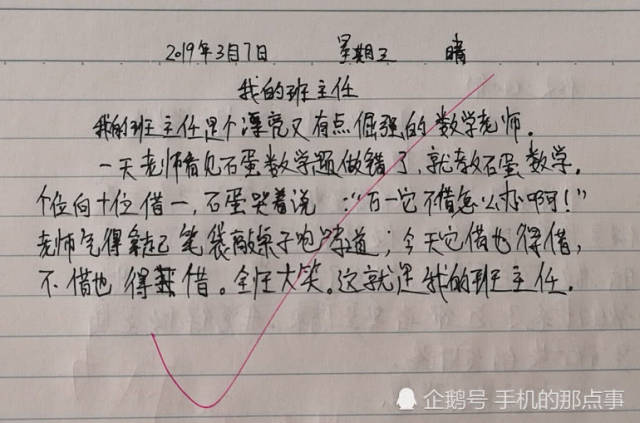 2019年3月7日 星期三 晴
我的班主任
我的班主任是个漂亮又有点倔强的数学老师.
一天老师看见石蛋数学题做错了,就教石蛋数学.
个位向十位借一,石蛋哭着说:“万一它不借怎么办啊!”
老师气得拿起笔袋敲桌子咆哮道;今天它借也得借,
不借也得借。全班大笑。这就是我的班主任.
企鹅号 手机的那点事